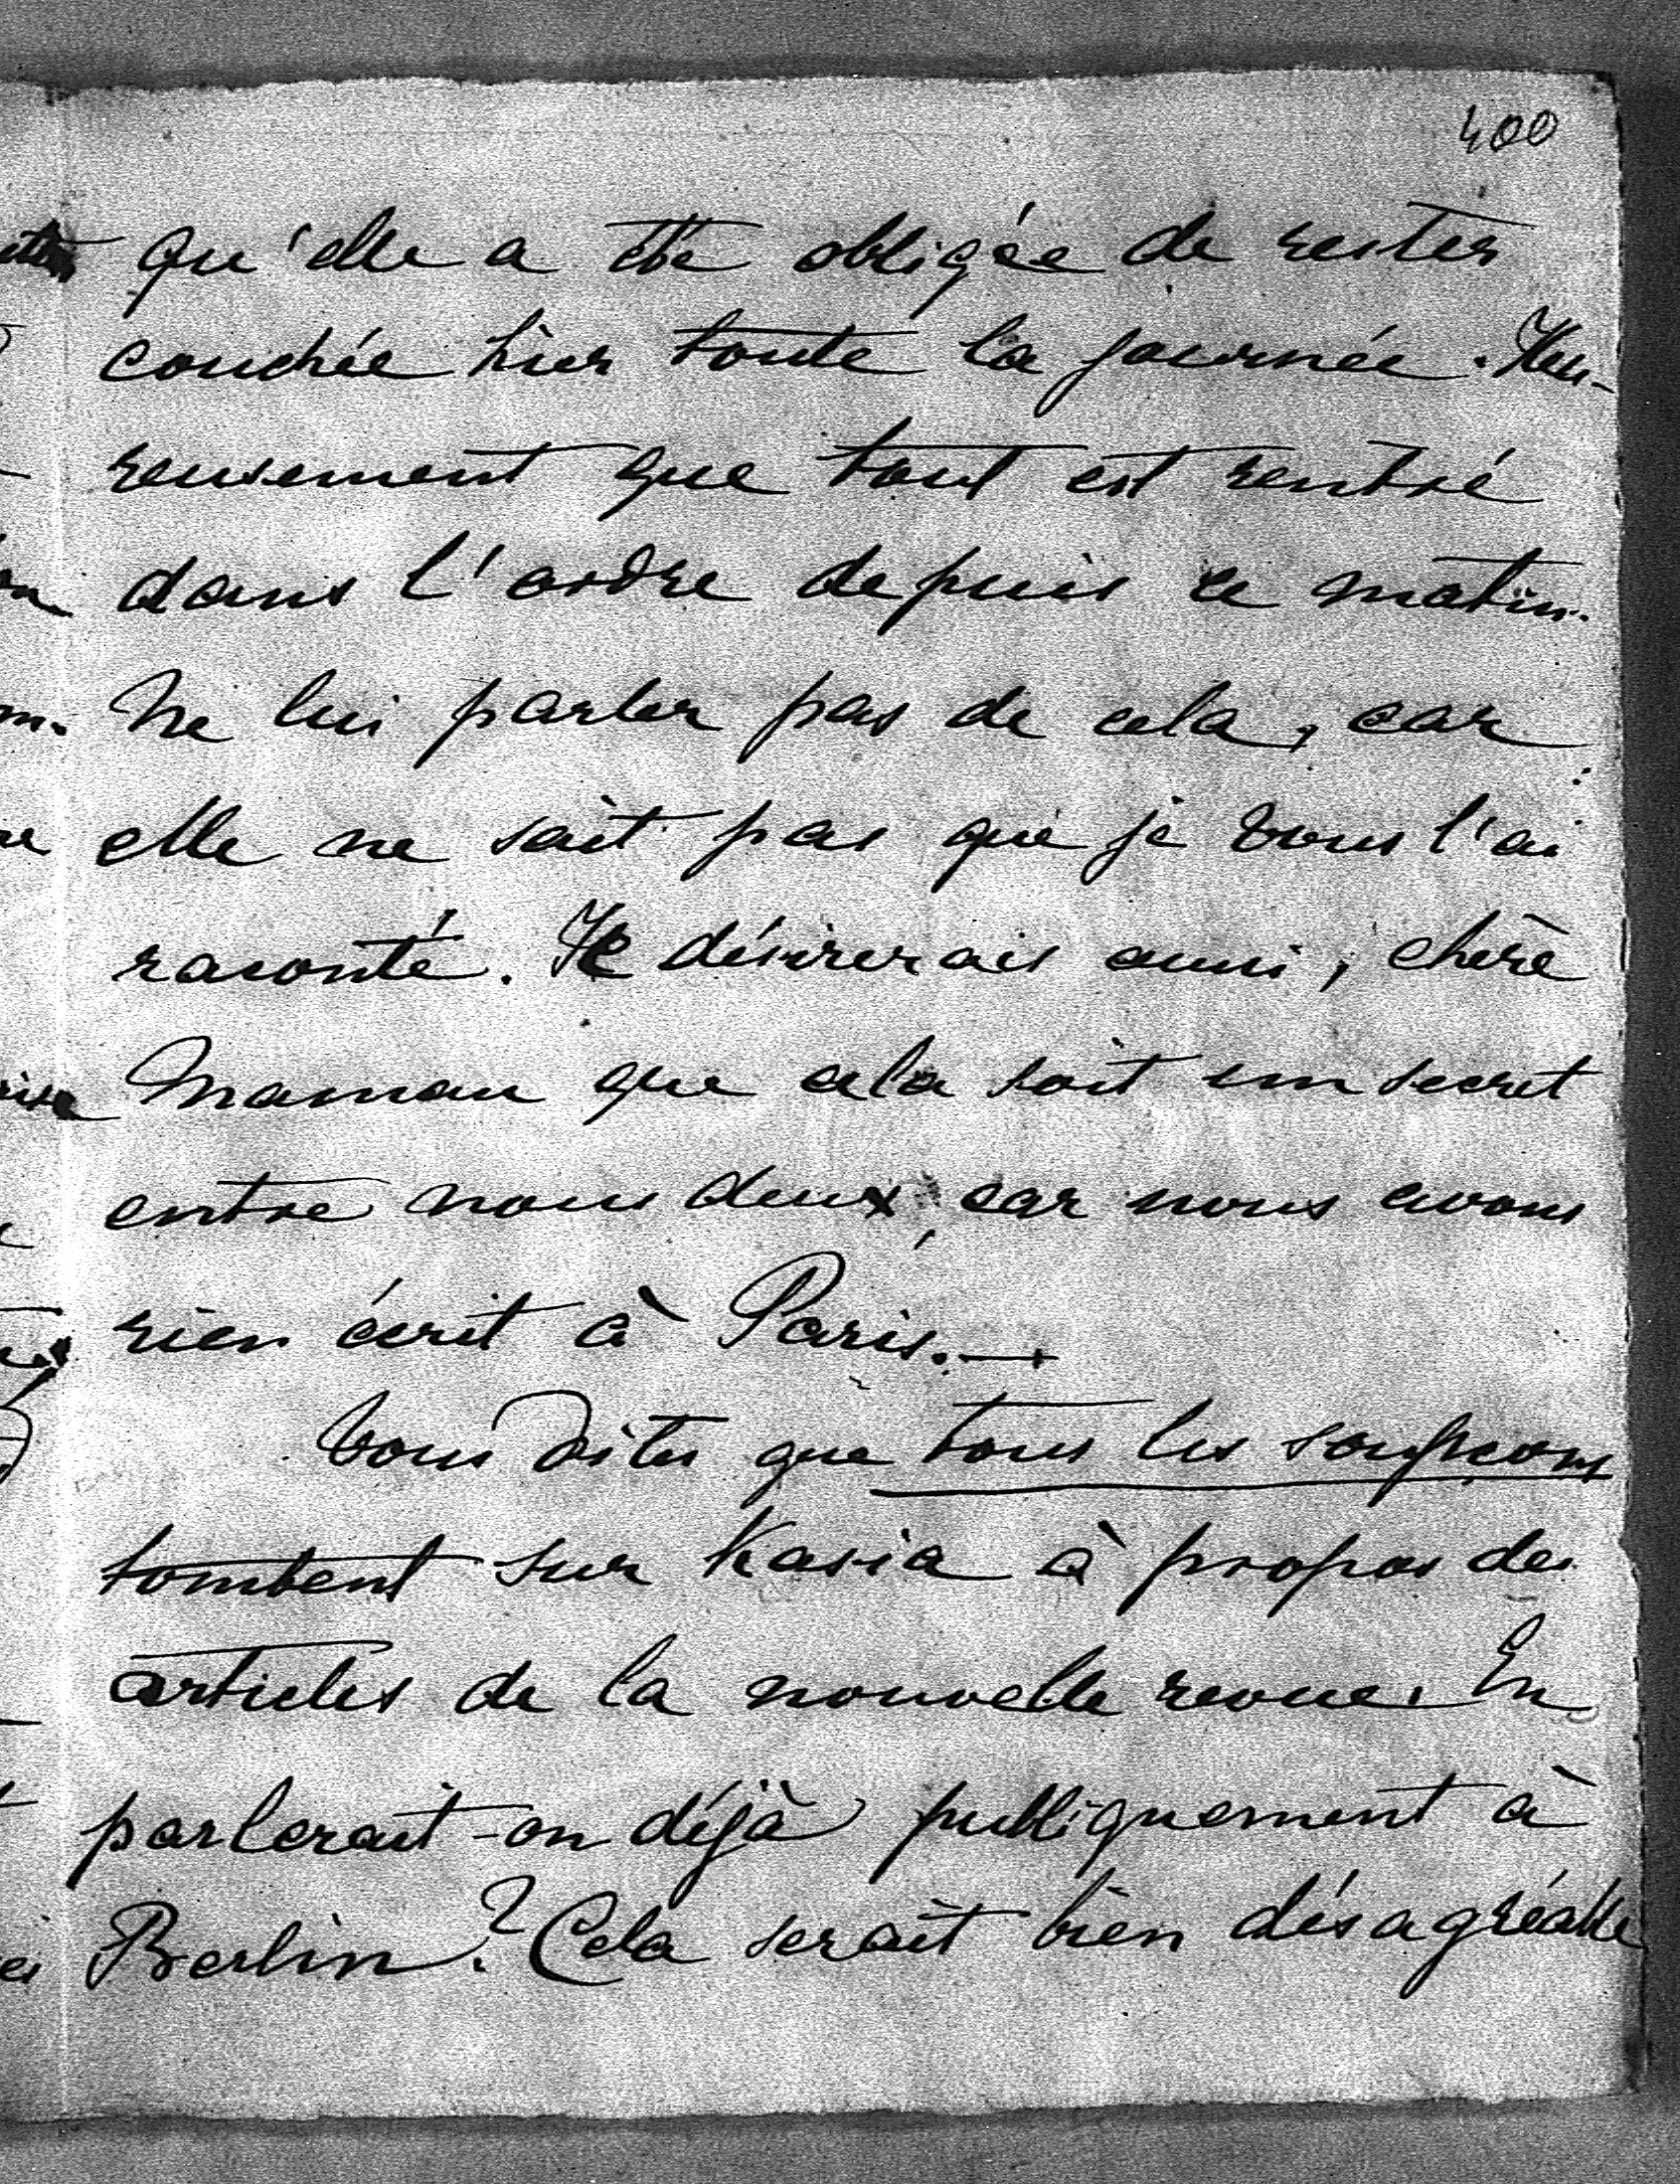 400
qu'elle a été obligée de rester
couchée hier toute la journée. Heu-
reusement que tout est rentré
dans l'ordre depuis ce matin.
Ne lui parler pas de cela, car
elle ne sait pas que je vous l'ai
raconté. Je désirerais aussi, chère
Maman que cela soit un secret
entre nous deux, car nous avons
rien écrit à Paris. —
Vous dites que tous les soupçons
tombent sur Kasia à propos des
articles de la nouvelle revue. En
parlerait-on déjà publiquement à
Berlin? Cela serait bien désagréable